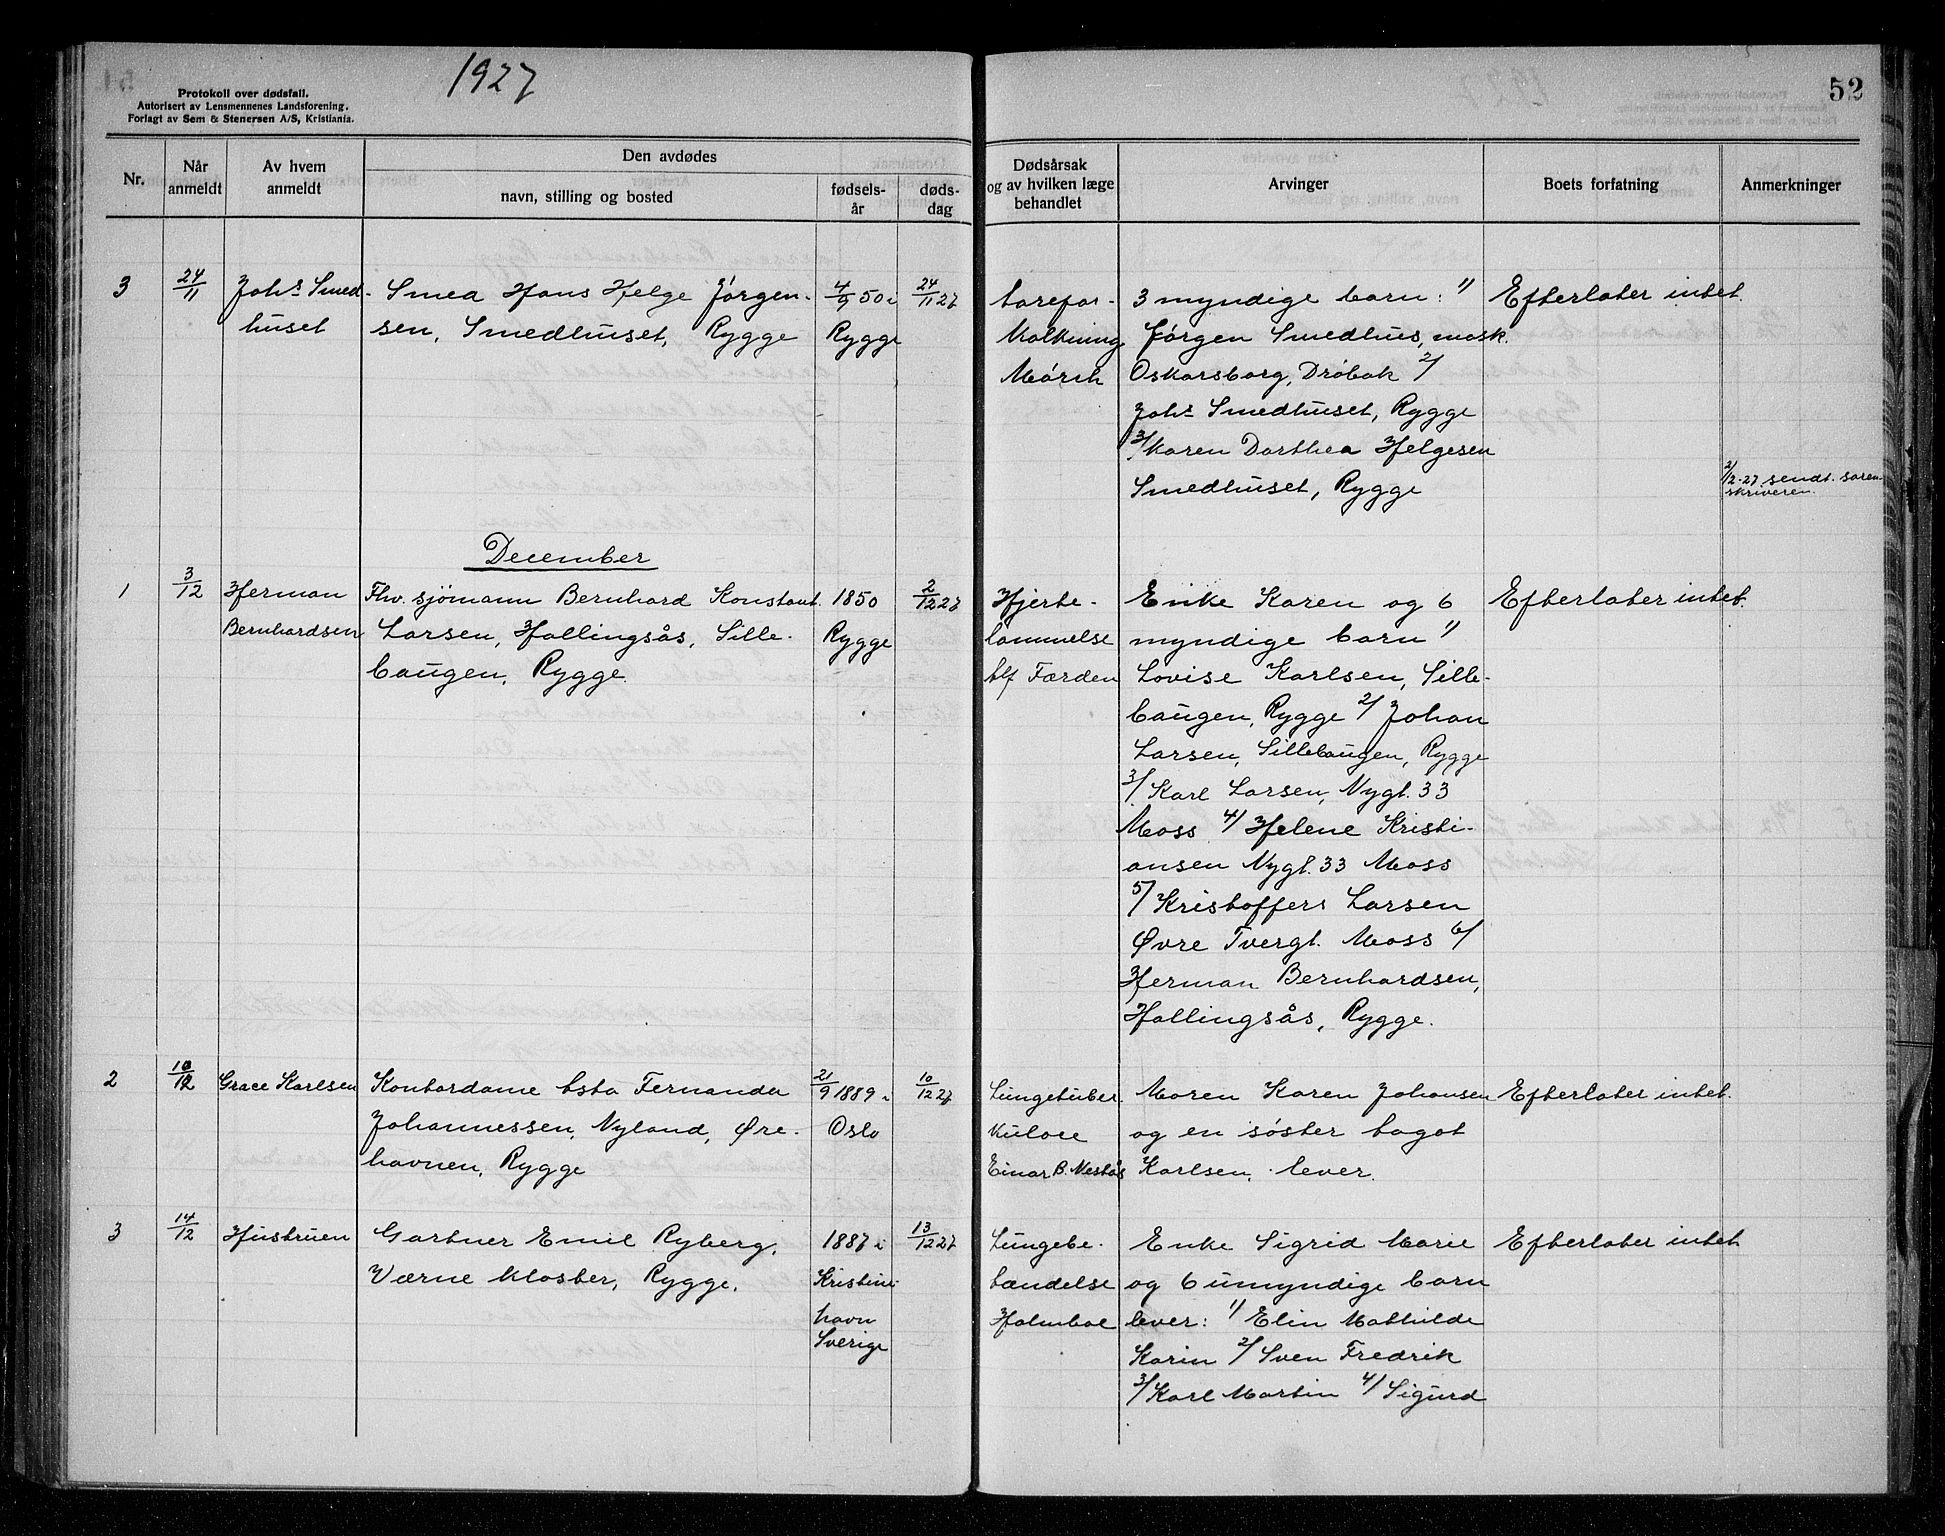 1927
52
Protokoll over dødsfall.
Autorisert av Lensmennenes Landsforening.
Forlagt av Sem & Stenersen A/S, Kristiania.
Nr.
Når anmeldt
Av hvem anmeldt
Den avdødes
navn, stilling og bosted
fødsels-år
døds-dag
Dødsårsak og av hvilken læge behandlet
Arvinger
Boets forfatning
Anmerkninger
3
24/11
Johs Smed-
huset
Smed Hans Helge Jörgen-
sen, Smedhuset, Rygge
4/9 50 i
Rygge
24/11 27
Mörch
3 myndige barn: 1/
Jörgen Smedhus, mask.
Oskarsborg, Dröbak 2/
Johs Smedhuset, Rygge
3/ Karen Dorthea Helgesen
Smedhuset, Rygge
Efterlater intet.
2/12-27 sendt soren-
skriveren.
December
1
3/12
Herman
Bernhardsen
Fhv. sjömann Bernhard Konstant.
Larsen, Hallingsås, Sille-
baugen, Rygge.
1850
Rygge
2/12 27
Hjerte-
lammelse
Alf Færden
Enke Karen og 6
myndige barn 1/
Lovise Karlsen, Sille-
baugen, Rygge 2/ Johan
Larsen, Sillebaugen, Rygge
3/ Karl Larsen, Nygt. 33
Moss 4/ Helene Kristi-
ansen Nygt. 33 Moss
5/ Kristoffers Larsen
Øvre Tvergt. Moss 6/
Herman Bernhardsen,
Hallingsås, Rygge.
Efterlater intet.
2
10/12
Grace Karlsen
Kontordame Asta Fernanda
Johannessen, Nyland, Øre-
havnen, Rygge
21/9 1889 i
Oslo
10/12 27
Lungetuber-
kulose
Einar B. Nestås
Moren Karen Johansen
og en söster Karlsen, lever.
Efterlater intet.
3
14/12
Hustruen
Gartner Emil Ryberg,
Værne Kloster, Rygge.
1887 i
Kristine-
havn
Sverige
13/12 27
Lungebe-
tændelse
Holmboe
Enke Sigrid Marie
og 6 umyndige barn
lever: 1/ Elin Mathilde
Karin 2/ Sven Fredrik
3/ Karl Martin 4/ Sigurd
Efterlater intet